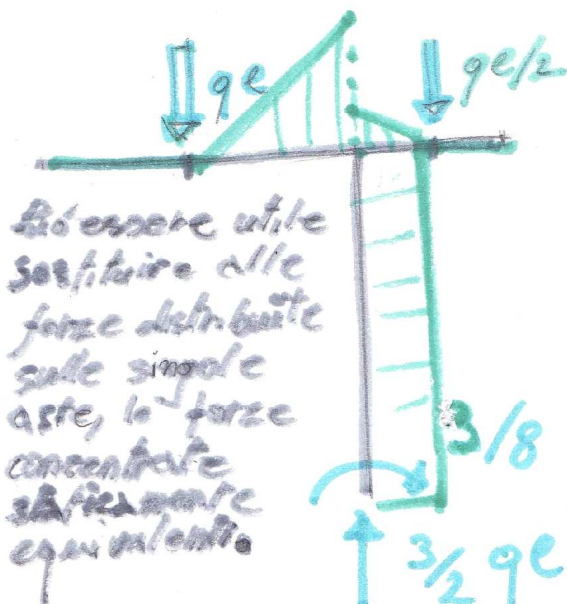 qe
qe/2
Può essere utile
sostituire alle
forze distribuite
sulle singole
aste, le forze
concentrate
staticamente
equivalenti.
3/8
3/2 qe